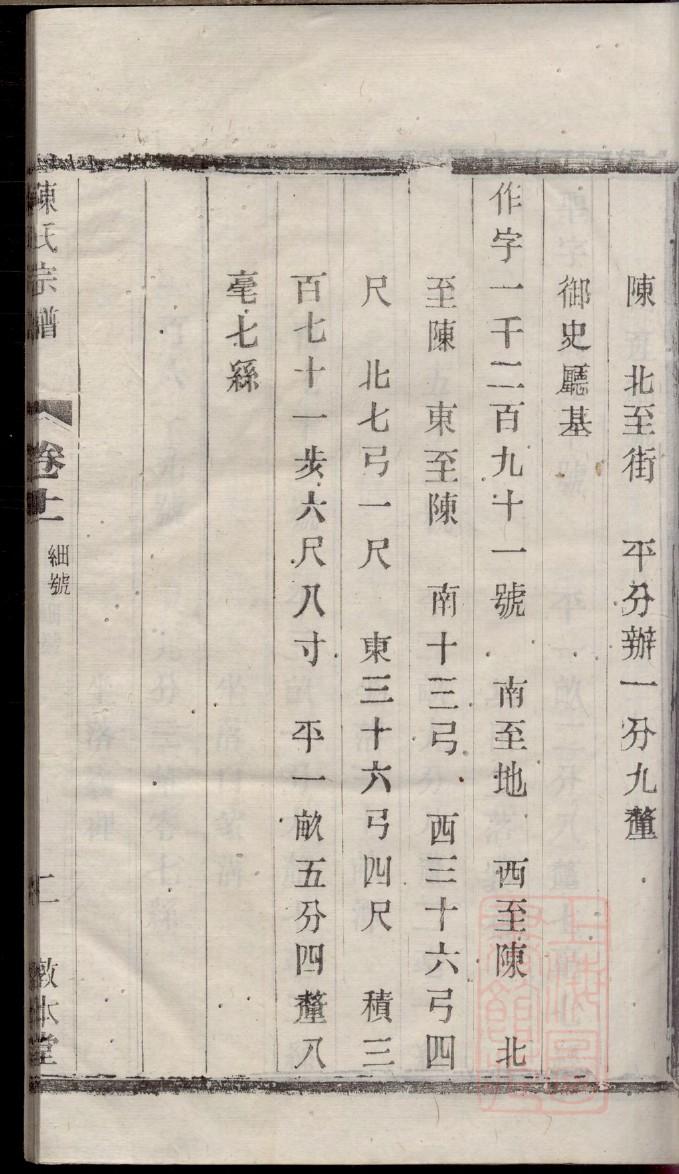 陳　北至街　平分辦一分九釐
御史廳基
作字一千二百九十一號　南至地　西至陳　北
至陳　東至陳　南十三弓　西三十六弓四
尺　北七弓一尺　東三十六弓四尺　積三
百七十一步六尺八寸　平一畝五分四釐八
毫七絲
陳氏宗譜
卷十一
細號
敦本堂